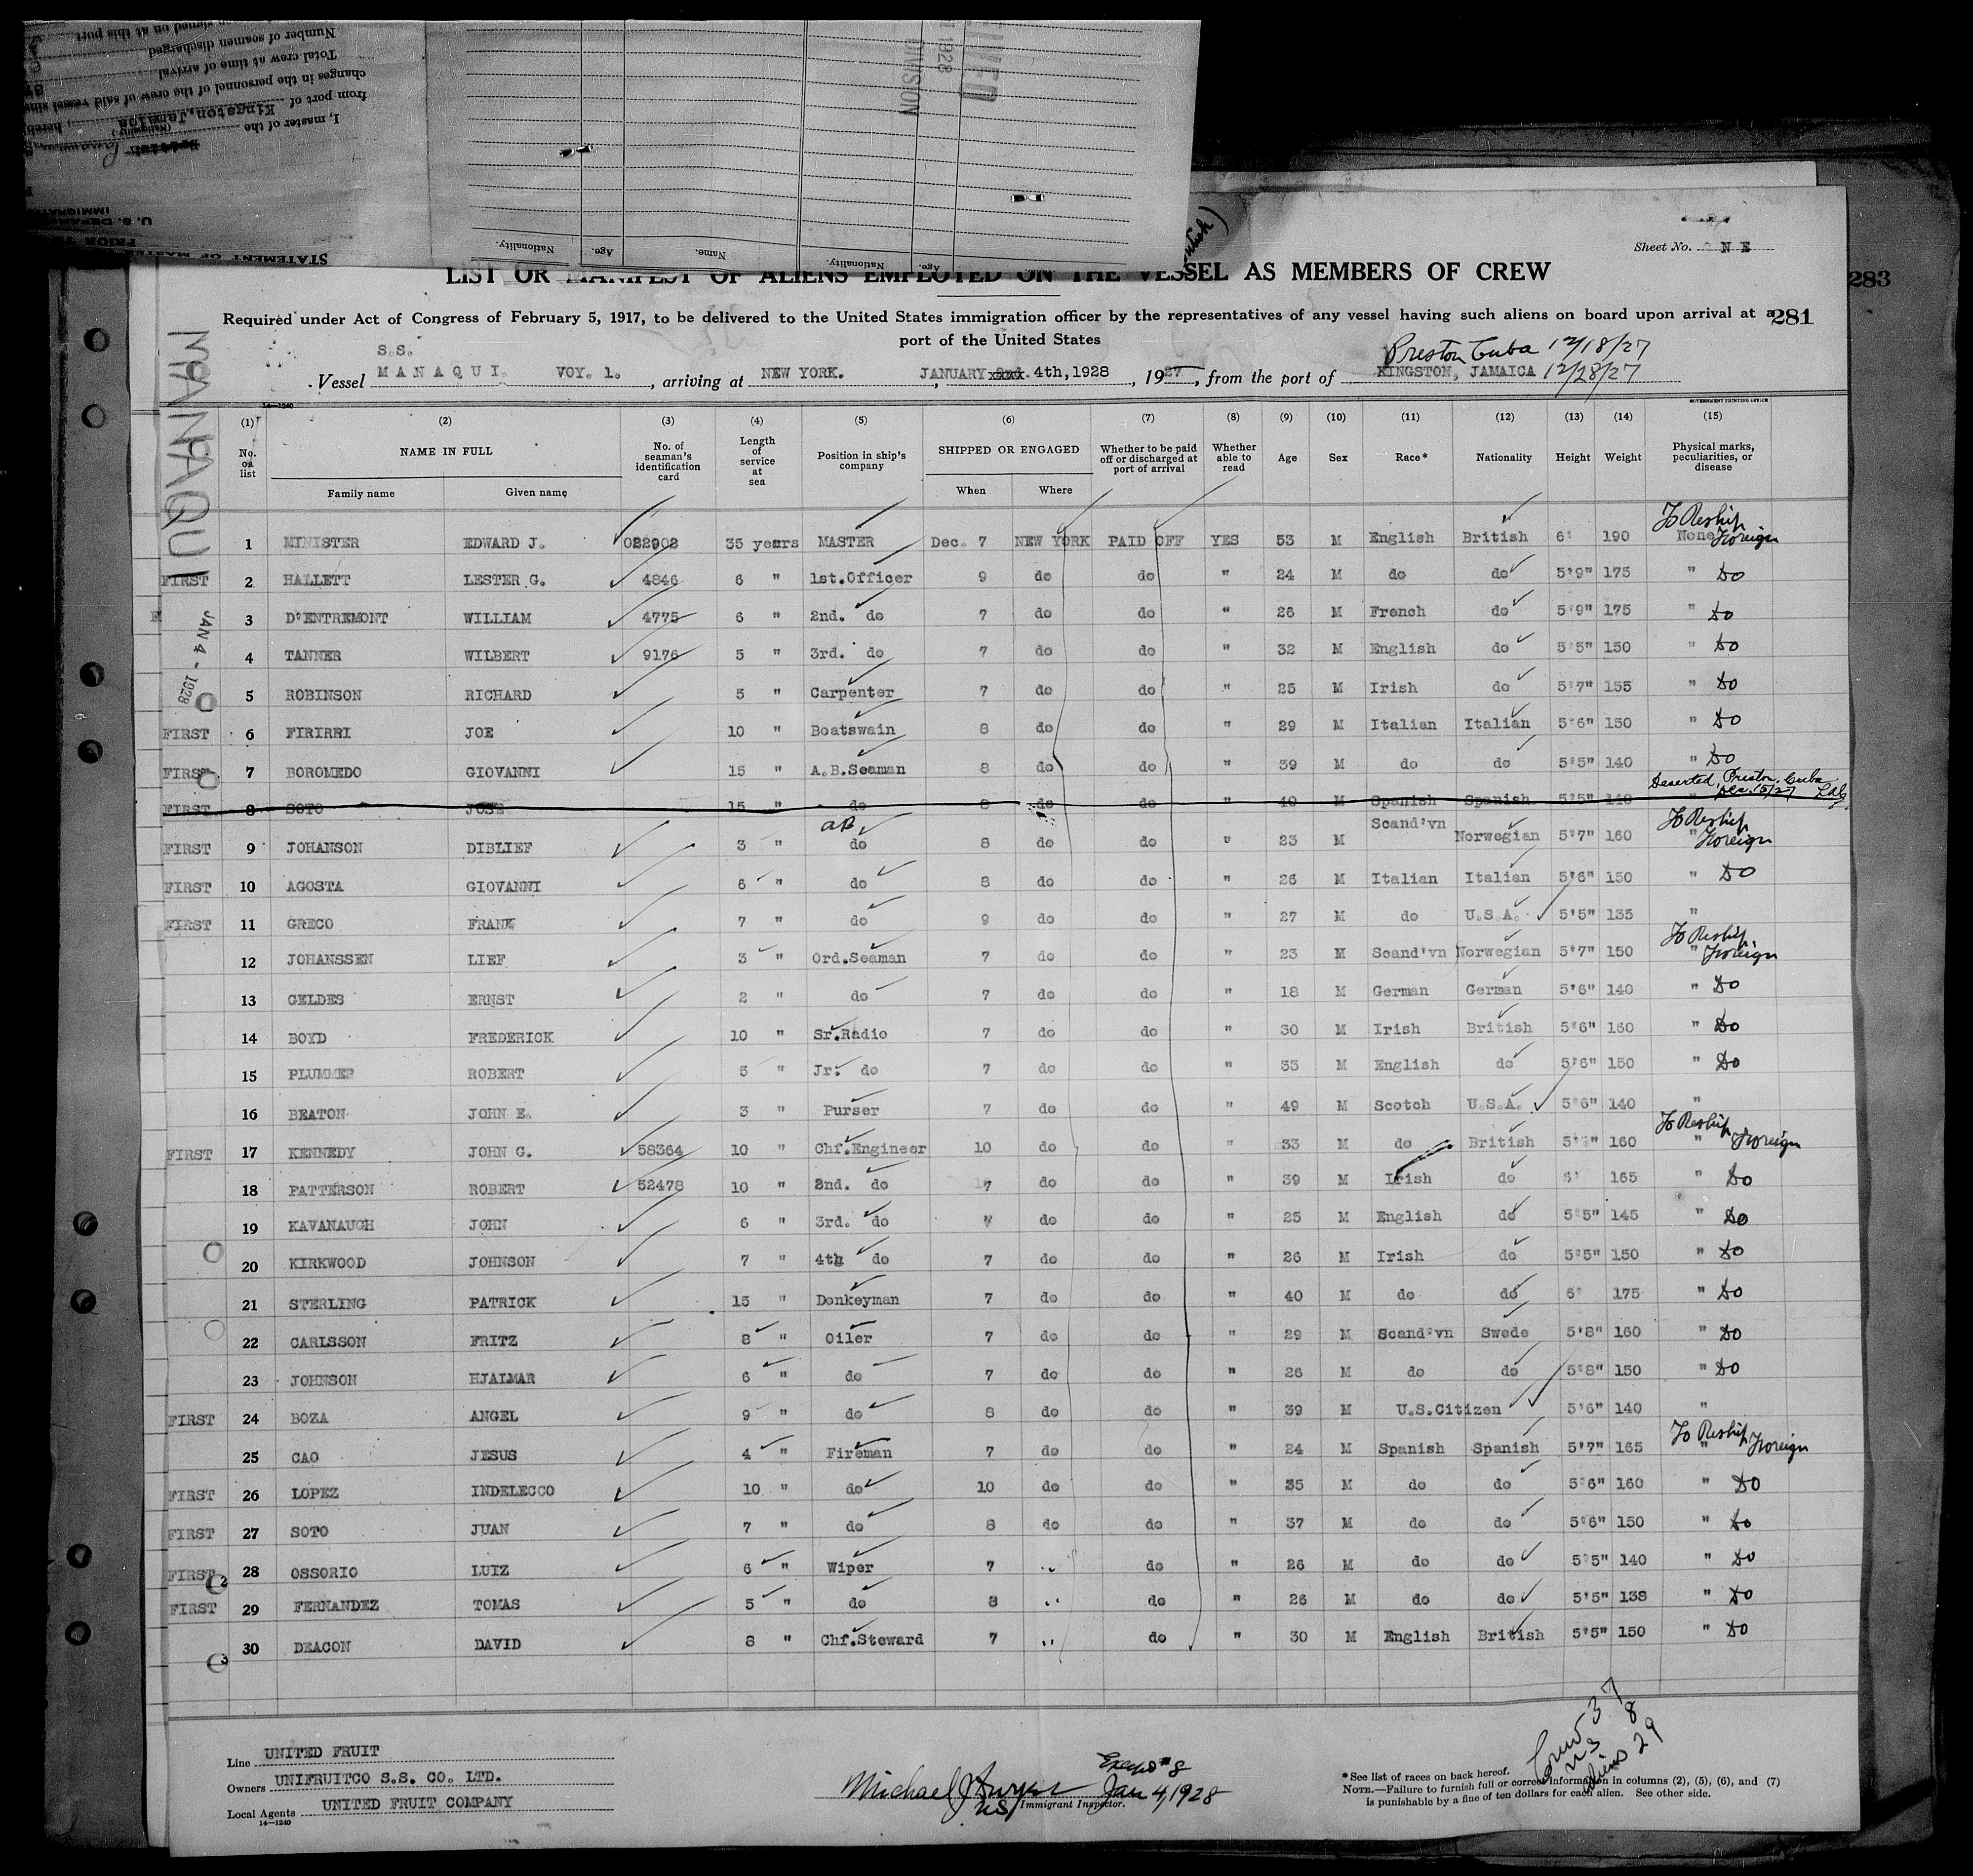 Number of seamen discharged
Total crew at time of arrival
changes in the personnel of the crew of said vessel
from port of Kingston, Jamaica
I, master of the
(Nationality)
Nationality. Age. Name. Nationality. Age.
1928
DIVISION
Sheet No. NE
LIST OR MANIFEST OF ALIENS EMPLOYED ON THE VESSEL AS MEMBERS OF CREW
283
Required under Act of Congress of February 5, 1917, to be delivered to the United States immigration officer by the representatives of any vessel having such aliens on board upon arrival at a
281
port of the United States
Preston Cuba 12/18/27
S.S.
Vessel MANAQUI. VOY. 1., arriving at NEW YORK. JANUARY 2nd. 4th, 1928, 1927, from the port of KINGSTON, JAMAICA 12/28/27
14—1240
GOVERNMENT PRINTING OFFICE
MANAQUI
JAN 4 - 1928
(1) (2) (3) (4) (5) (6) (7) (8) (9) (10) (11) (12) (13) (14) (15)
No. on list NAME IN FULL No. of seaman's identification card Length of service at sea Position in ship's company SHIPPED OR ENGAGED Whether to be paid off or discharged at port of arrival Whether able to read Age Sex Race* Nationality Height Weight Physical marks, peculiarities, or disease
Family name Given name When Where
1 MINISTER EDWARD J. 022902 35 years MASTER Dec. 7 NEW YORK PAID OFF YES 53 M English British 6' 190 None To Reship Foreign
FIRST 2 HALLETT LESTER G. 4846 6 " 1st.Officer 9 do do " 24 M do do 5'9" 175 " Do
3 D'ENTREMONT WILLIAM 4775 6 " 2nd. do 7 do do " 26 M French do 5'9" 175 " Do
4 TANNER WILBERT 9176 5 " 3rd. do 7 do do " 32 M English do 5'5" 150 " Do
5 ROBINSON RICHARD 5 " Carpenter 7 do do " 25 M Irish do 5'7" 155 " Do
FIRST 6 FIRIRRI JOE 10 " Boatswain 8 do do " 29 M Italian Italian 5'6" 150 " Do
FIRST 7 BOROMEDO GIOVANNI 15 " A.B.Seaman 8 do do " 39 M do do 5'5" 140 " Do
FIRST 8 SOTO JOSE 15 " do 8 do do " 40 M Spanish Spanish 5'5" 140 Deserted, Preston, Cuba Dec. 15/27
FIRST 9 JOHANSON DIBLIEF 3 " AB do 8 do do " 23 M Scand'vn Norwegian 5'7" 160 " To Reship Foreign
FIRST 10 AGOSTA GIOVANNI 6 " do 8 do do " 26 M Italian Italian 5'6" 150 " Do
FIRST 11 GRECO FRANK 7 " do 9 do do " 27 M do U.S.A. 5'5" 135 "
12 JOHANSSEN LIEF 3 " Ord.Seaman 7 do do " 23 M Scand'vn Norwegian 5'7" 150 " To Reship Foreign
13 GELDES ERNST 2 " do 7 do do " 18 M German German 5'6" 140 " Do
14 BOYD FREDERICK 10 " Sr.Radio 7 do do " 30 M Irish British 5'6" 160 " Do
15 PLUMMER ROBERT 5 " Jr. do 7 do do " 35 M English do 5'6" 150 " Do
16 BEATON JOHN E. 3 " Purser 7 do do " 49 M Scotch U.S.A. 5'6" 140 "
FIRST 17 KENNEDY JOHN G. 58364 10 " Chf.Engineer 10 do do " 33 M do British 160 " To Reship Foreign
18 PATTERSON ROBERT 52478 10 " 2nd. do 7 do do " 39 M Irish do 6' 165 " Do
19 KAVANAUGH JOHN 6 " 3rd. do 7 do do " 25 M English do 5'5" 145 " Do
20 KIRKWOOD JOHNSON 7 " 4th do 7 do do " 26 M Irish do 5'5" 150 " Do
21 STERLING PATRICK 15 " Donkeyman 7 do do " 40 M do do 6' 175 " Do
22 CARLSSON FRITZ 8 " Oiler 7 do do " 29 M Scand'vn Swede 5'8" 160 " Do
23 JOHNSON HJALMAR 6 " do 7 do do " 26 M do do 5'8" 150 " Do
FIRST 24 BOZA ANGEL 9 " do 8 do do " 39 M U.S.Citizen 5'6" 140 "
25 CAO JESUS 4 " Fireman 7 do do " 24 M Spanish Spanish 5'7" 165 " To Reship Foreign
FIRST 26 LOPEZ INDELECCO 10 " do 10 do do " 35 M do do 5'6" 160 " Do
FIRST 27 SOTO JUAN 7 " do 8 do do " 37 M do do 5'6" 150 " Do
FIRST 28 OSSORIO LUIZ 6 " Wiper 7 " do " 26 M do do 5'5" 140 " Do
FIRST 29 FERNANDEZ TOMAS 5 " do 8 " do " 26 M do do 5'5" 138 " Do
30 DEACON DAVID 8 " Chf.Steward 7 " do " 30 M English British 5'5" 150 " Do
Crew 37
8
Aliens 29
Line UNITED FRUIT
Owners UNIFRUITCO S.S. CO. LTD.
Local Agents UNITED FRUIT COMPANY
14—1240
Michael J Dwyer Jan 4, 1928
US Immigrant Inspector.
*See list of races on back hereof.
NOTE.—Failure to furnish full or correct information in columns (2), (5), (6), and (7)
is punishable by a fine of ten dollars for each alien. See other side.